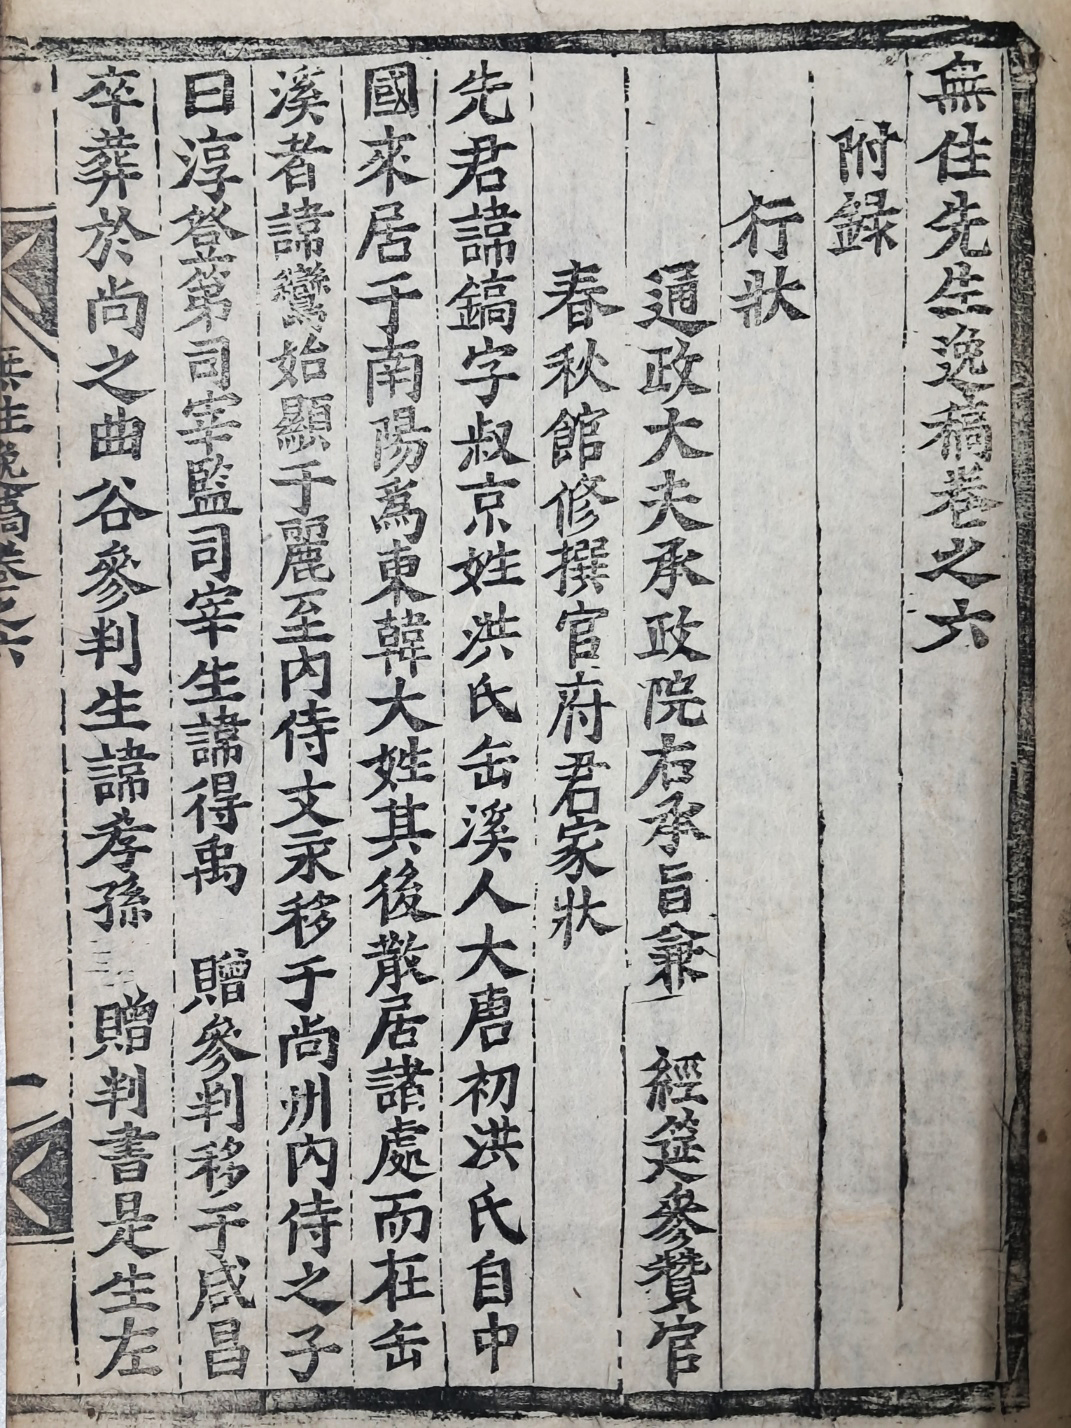 無住先生逸稿卷之六
附録
行狀
通政大夫承政院右承旨兼　經筵參贊官
春秋館修撰官府君家狀
先君諱鎬字叔京姓洪氏缶溪人大唐初洪氏自中
國來居于南陽爲東韓大姓其後散居諸處而在缶
溪者諱鸞始顯于麗至内侍文永移于尚州内侍之子
曰淳登第司宰監司宰生諱得禹　贈參判移于咸昌
卒葬於尚之曲谷參判生諱孝孫　贈判書是生左
無住逸稿卷之六
一